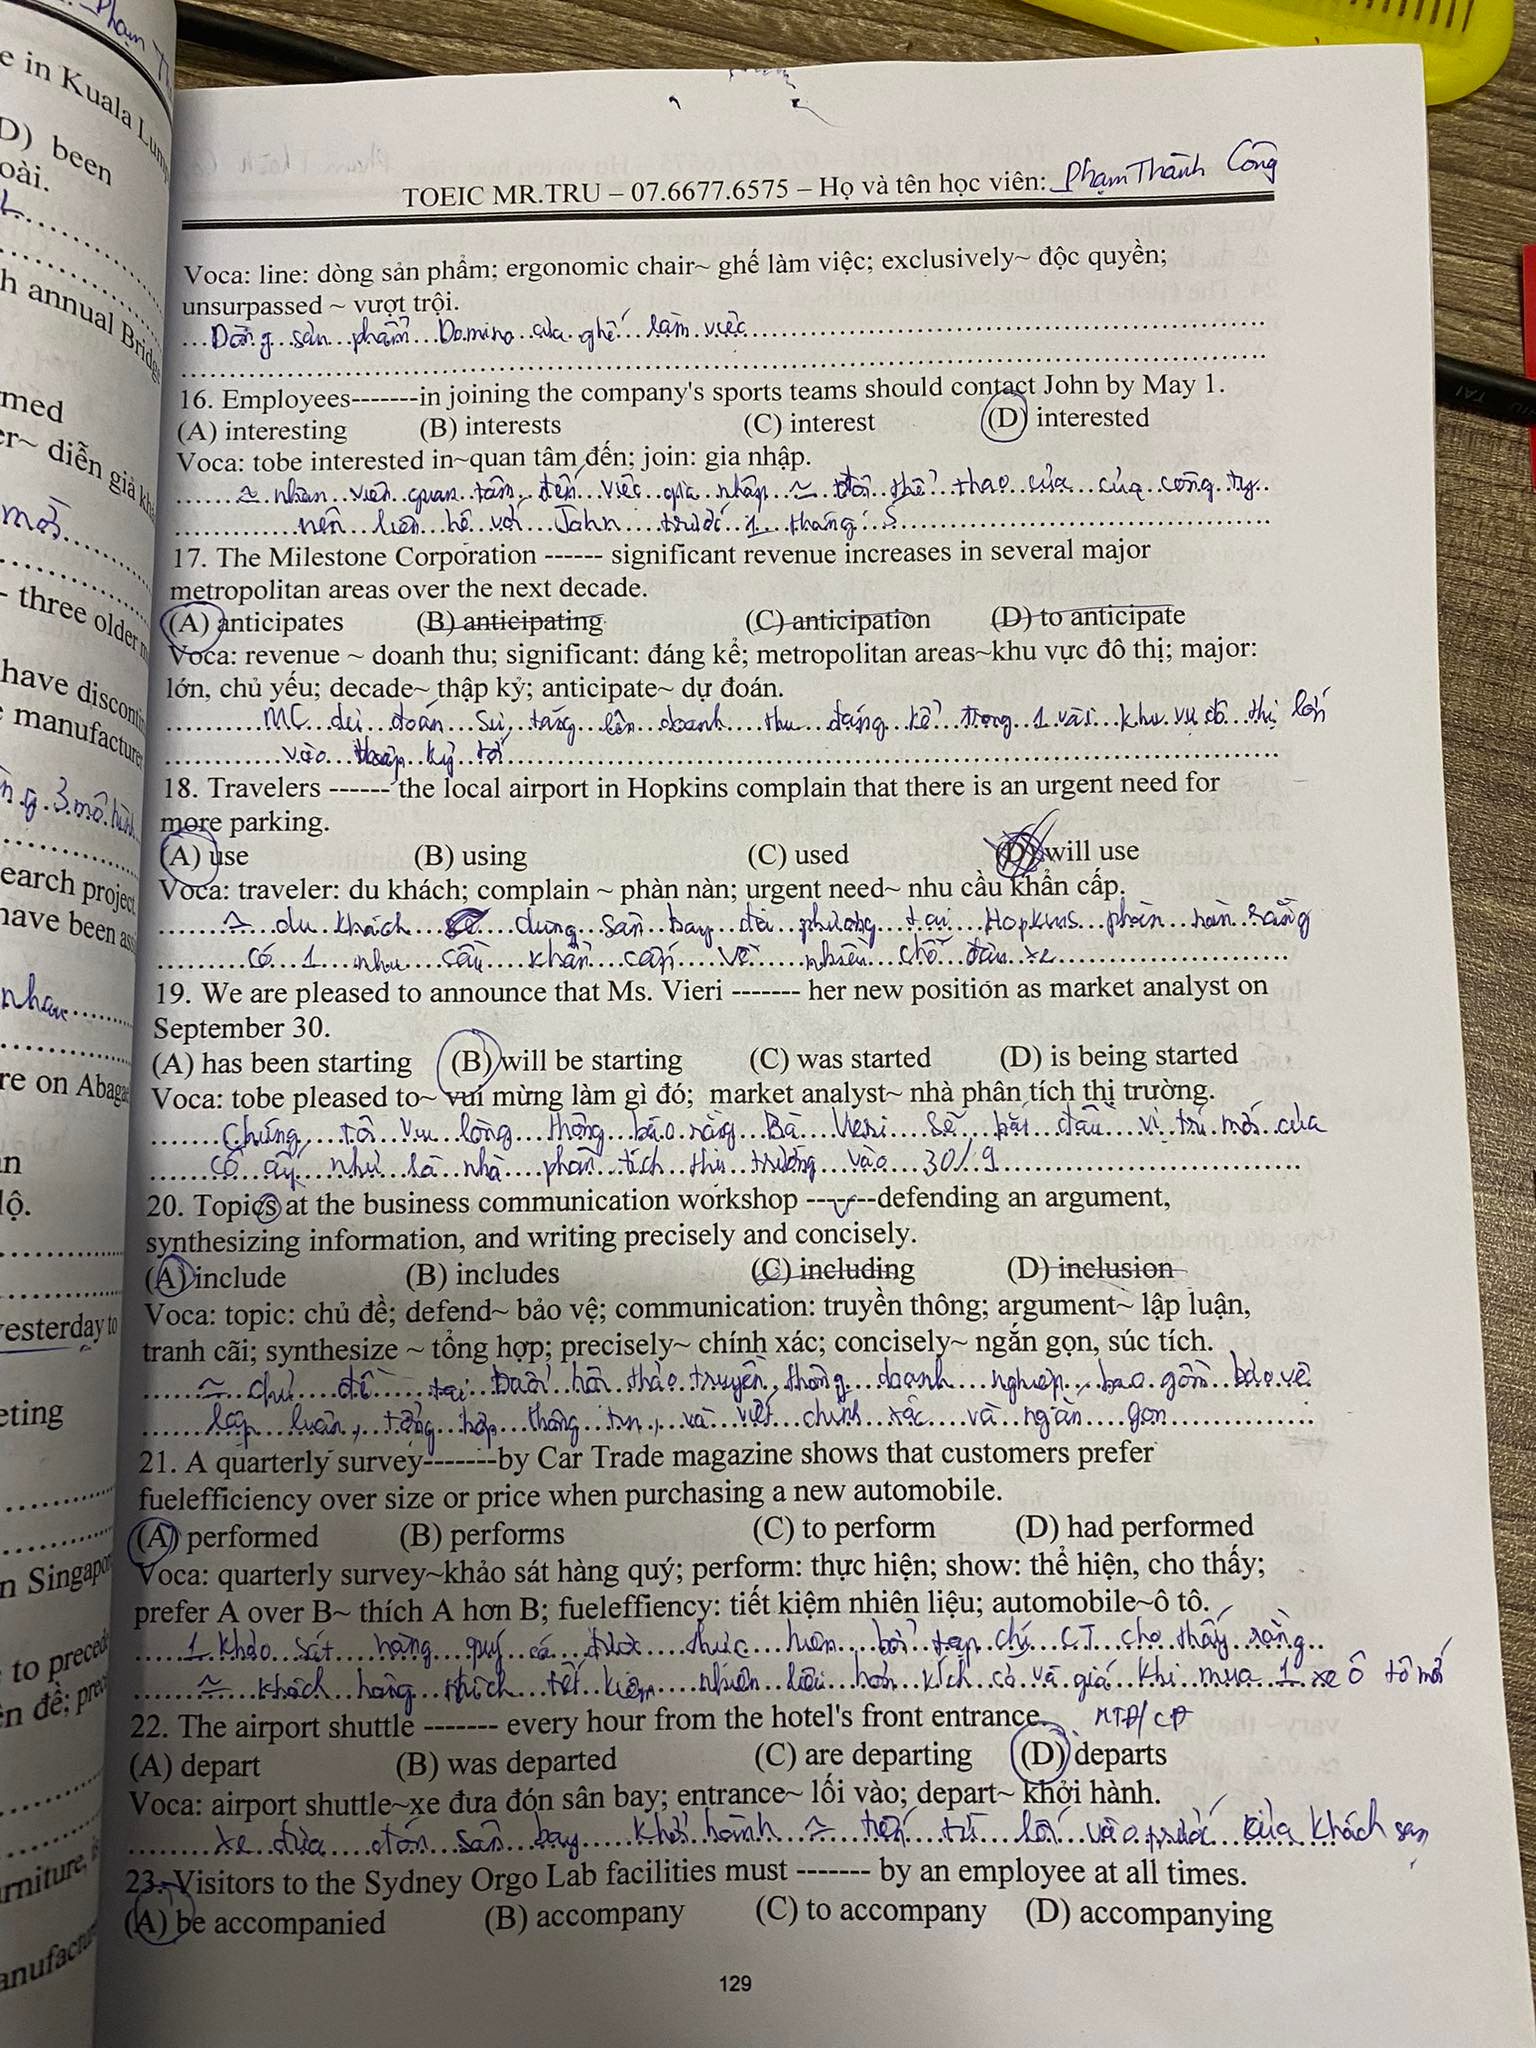 TOEIC MR.TRU – 07.6677.6575 – Họ và tên học viên: Phạm Thành Công
Voca: line: dòng sản phẩm; ergonomic chair~ ghế làm việc; exclusively~ độc quyền;
unsurpassed ~ vượt trội.
Dòng sản phẩm Domino của ghế làm việc
16. Employees-------in joining the company's sports teams should contact John by May 1.
(A) interesting (B) interests (C) interest (D) interested
Voca: tobe interested in~quan tâm đến; join: gia nhập.
≈ nhân viên quan tâm đến việc gia nhập ≈ đội thể thao của của công ty
nên liên hệ với John trước 1 tháng 5
17. The Milestone Corporation ------ significant revenue increases in several major
metropolitan areas over the next decade.
(A) anticipates (B) anticipating (C) anticipation (D) to anticipate
Voca: revenue ~ doanh thu; significant: đáng kể; metropolitan areas~khu vực đô thị; major:
lớn, chủ yếu; decade~ thập kỷ; anticipate~ dự đoán.
MC dự đoán sự tăng lên doanh thu đáng kể trong 1 vài khu vự đô thị lớn
vào thập kỷ tới
18. Travelers ------ the local airport in Hopkins complain that there is an urgent need for
more parking.
(A) use (B) using (C) used (D) will use
Voca: traveler: du khách; complain ~ phàn nàn; urgent need~ nhu cầu khẩn cấp.
≈ du khách dùng sân bay địa phương tại Hopkins phàn nàn rằng
có 1 nhu cầu khẩn cấp về nhiều chỗ đậu xe
19. We are pleased to announce that Ms. Vieri ------- her new position as market analyst on
September 30.
(A) has been starting (B) will be starting (C) was started (D) is being started
Voca: tobe pleased to~ vui mừng làm gì đó; market analyst~ nhà phân tích thị trường.
Chúng tôi vui lòng thông báo rằng Bà Vieri sẽ bắt đầu vị trí mới của
cô ấy như là nhà phân tích thị trường vào 30/9
20. Topics at the business communication workshop -------defending an argument,
synthesizing information, and writing precisely and concisely.
(A) include (B) includes (C) including (D) inclusion
Voca: topic: chủ đề; defend~ bảo vệ; communication: truyền thông; argument~ lập luận,
tranh cãi; synthesize ~ tổng hợp; precisely~ chính xác; concisely~ ngắn gọn, súc tích.
≈ chủ đề tại buổi hội thảo truyền thông doanh nghiệp bao gồm bảo vệ
lập luận, tổng hợp thông tin, và viết chính xác và ngắn gọn
21. A quarterly survey-------by Car Trade magazine shows that customers prefer
fuelefficiency over size or price when purchasing a new automobile.
(A) performed (B) performs (C) to perform (D) had performed
Voca: quarterly survey~khảo sát hàng quý; perform: thực hiện; show: thể hiện, cho thấy;
prefer A over B~ thích A hơn B; fueleffiency: tiết kiệm nhiên liệu; automobile~ô tô.
1 khảo sát hàng quý được thực hiện bởi tạp chí CT cho thấy rằng
≈ khách hàng thích tiết kiệm nhiên liệu hơn kích cỡ và giá khi mua 1 xe ô tô mới
22. The airport shuttle ------- every hour from the hotel's front entrance.
(A) depart (B) was departed (C) are departing (D) departs
Voca: airport shuttle~xe đưa đón sân bay; entrance~ lối vào; depart~ khởi hành.
xe đưa đón sân bay khởi hành ≈ từ lối vào trước của khách sạn
23. Visitors to the Sydney Orgo Lab facilities must ------- by an employee at all times.
(A) be accompanied (B) accompany (C) to accompany (D) accompanying
129